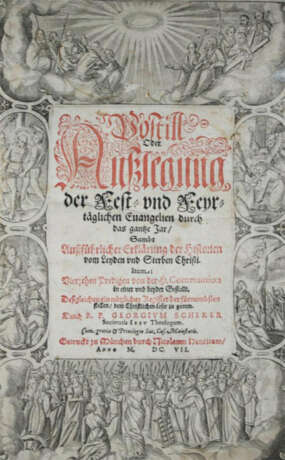 Postill
Oder
Außlegung
der Fest- vnd Feyr-
täglichen Euangelien durch
das gantze Jar/
Sambt
Außführlicher Erklärung der Historien
vom Leyden vnd Sterben Christi.
Item:
Vierzehen Predigen von der H. Communion
in einer vnd beyder Gestalt.
Deßgleichen ein nützlicher Register der fürnembsten
Durch R. P. GEORGIVM SCHERER
Societatis IESV Theologum.
Cum gratia & Priuilegio Sac. Cæs. Maiestatis.
Getruckt zu München durch Nicolaum Henricum/
Anno M. DC. VII.